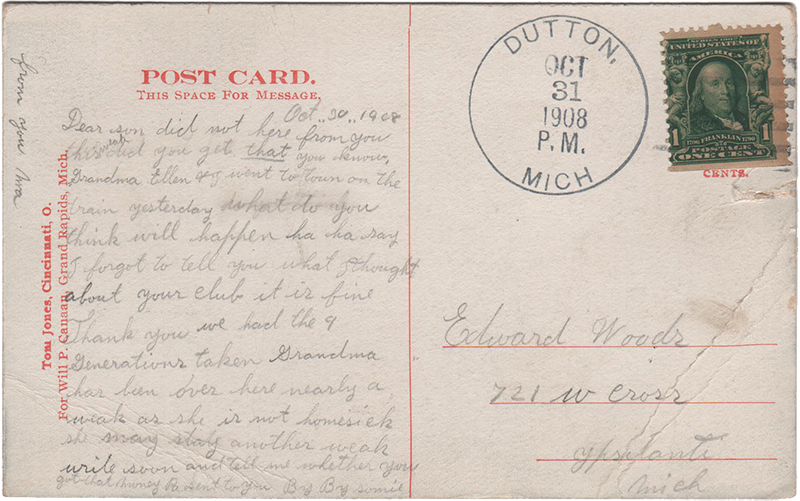 POST CARD.
THIS SPACE FOR MESSAGE.
Oct. 30, 1908
Dear son did not here from you
this weak did you get that you know,
Grandma Ellen & I went to town on the
train yesterday what do you
think will happen ha ha say
I forgot to tell you what I thought
about your club it is fine
Thank you we had the 4
Generations taken Grandma
has been over here nearly a
weak as she is not homesick
she may stay another weak
write soon and tell me whether you
got that money Pa sent to you By By
from you Ma
Tom Jones, Cincinnati, O.
For Will P. Canaan, Grand Rapids, Mich.
DUTTON,
OCT
31
1908
P. M.
MICH
SERIES 1902
UNITED STATES OF
AMERICA
1
1706 FRANKLIN 1790
1
POSTAGE
ONE CENT
CENTS.
Edward Woods
721 W Cross
Ypsilanti
Mich